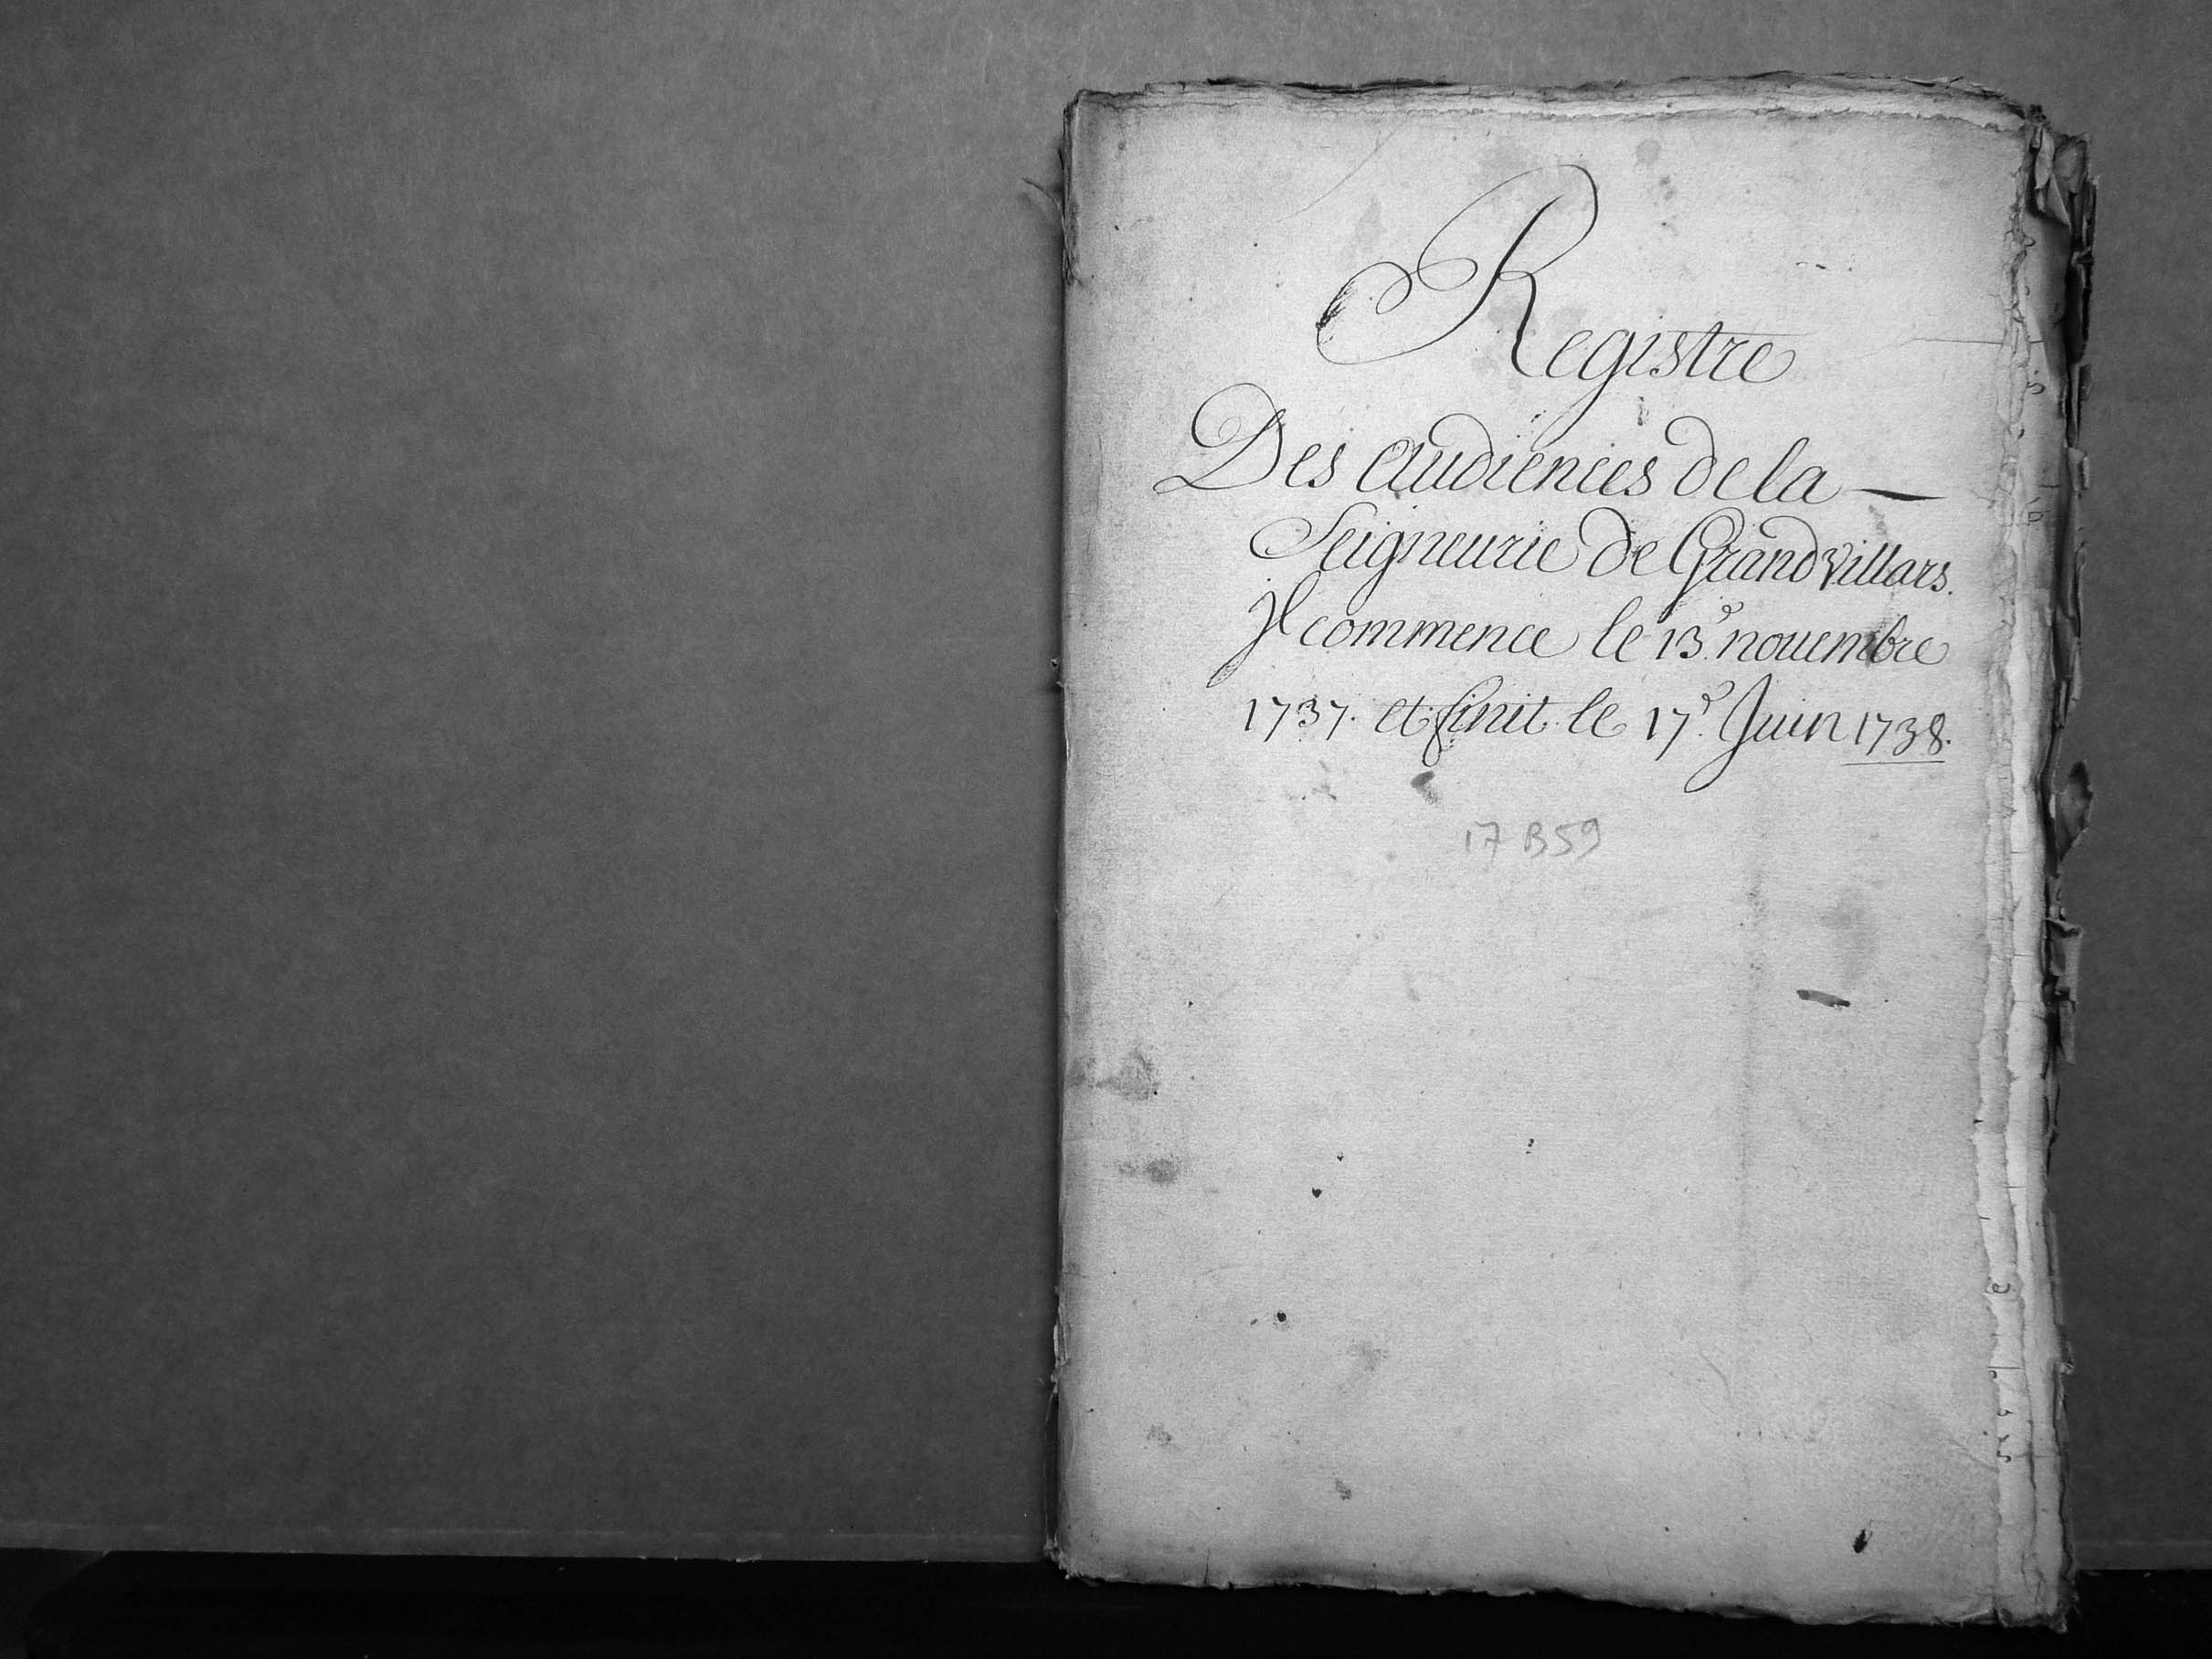 Registre
Des audiences de la —
Seigneurie de Grandvillars.
Jl commence le 13.e nouembre
1737. et finit le 17.e Juin 1738.
17 B59